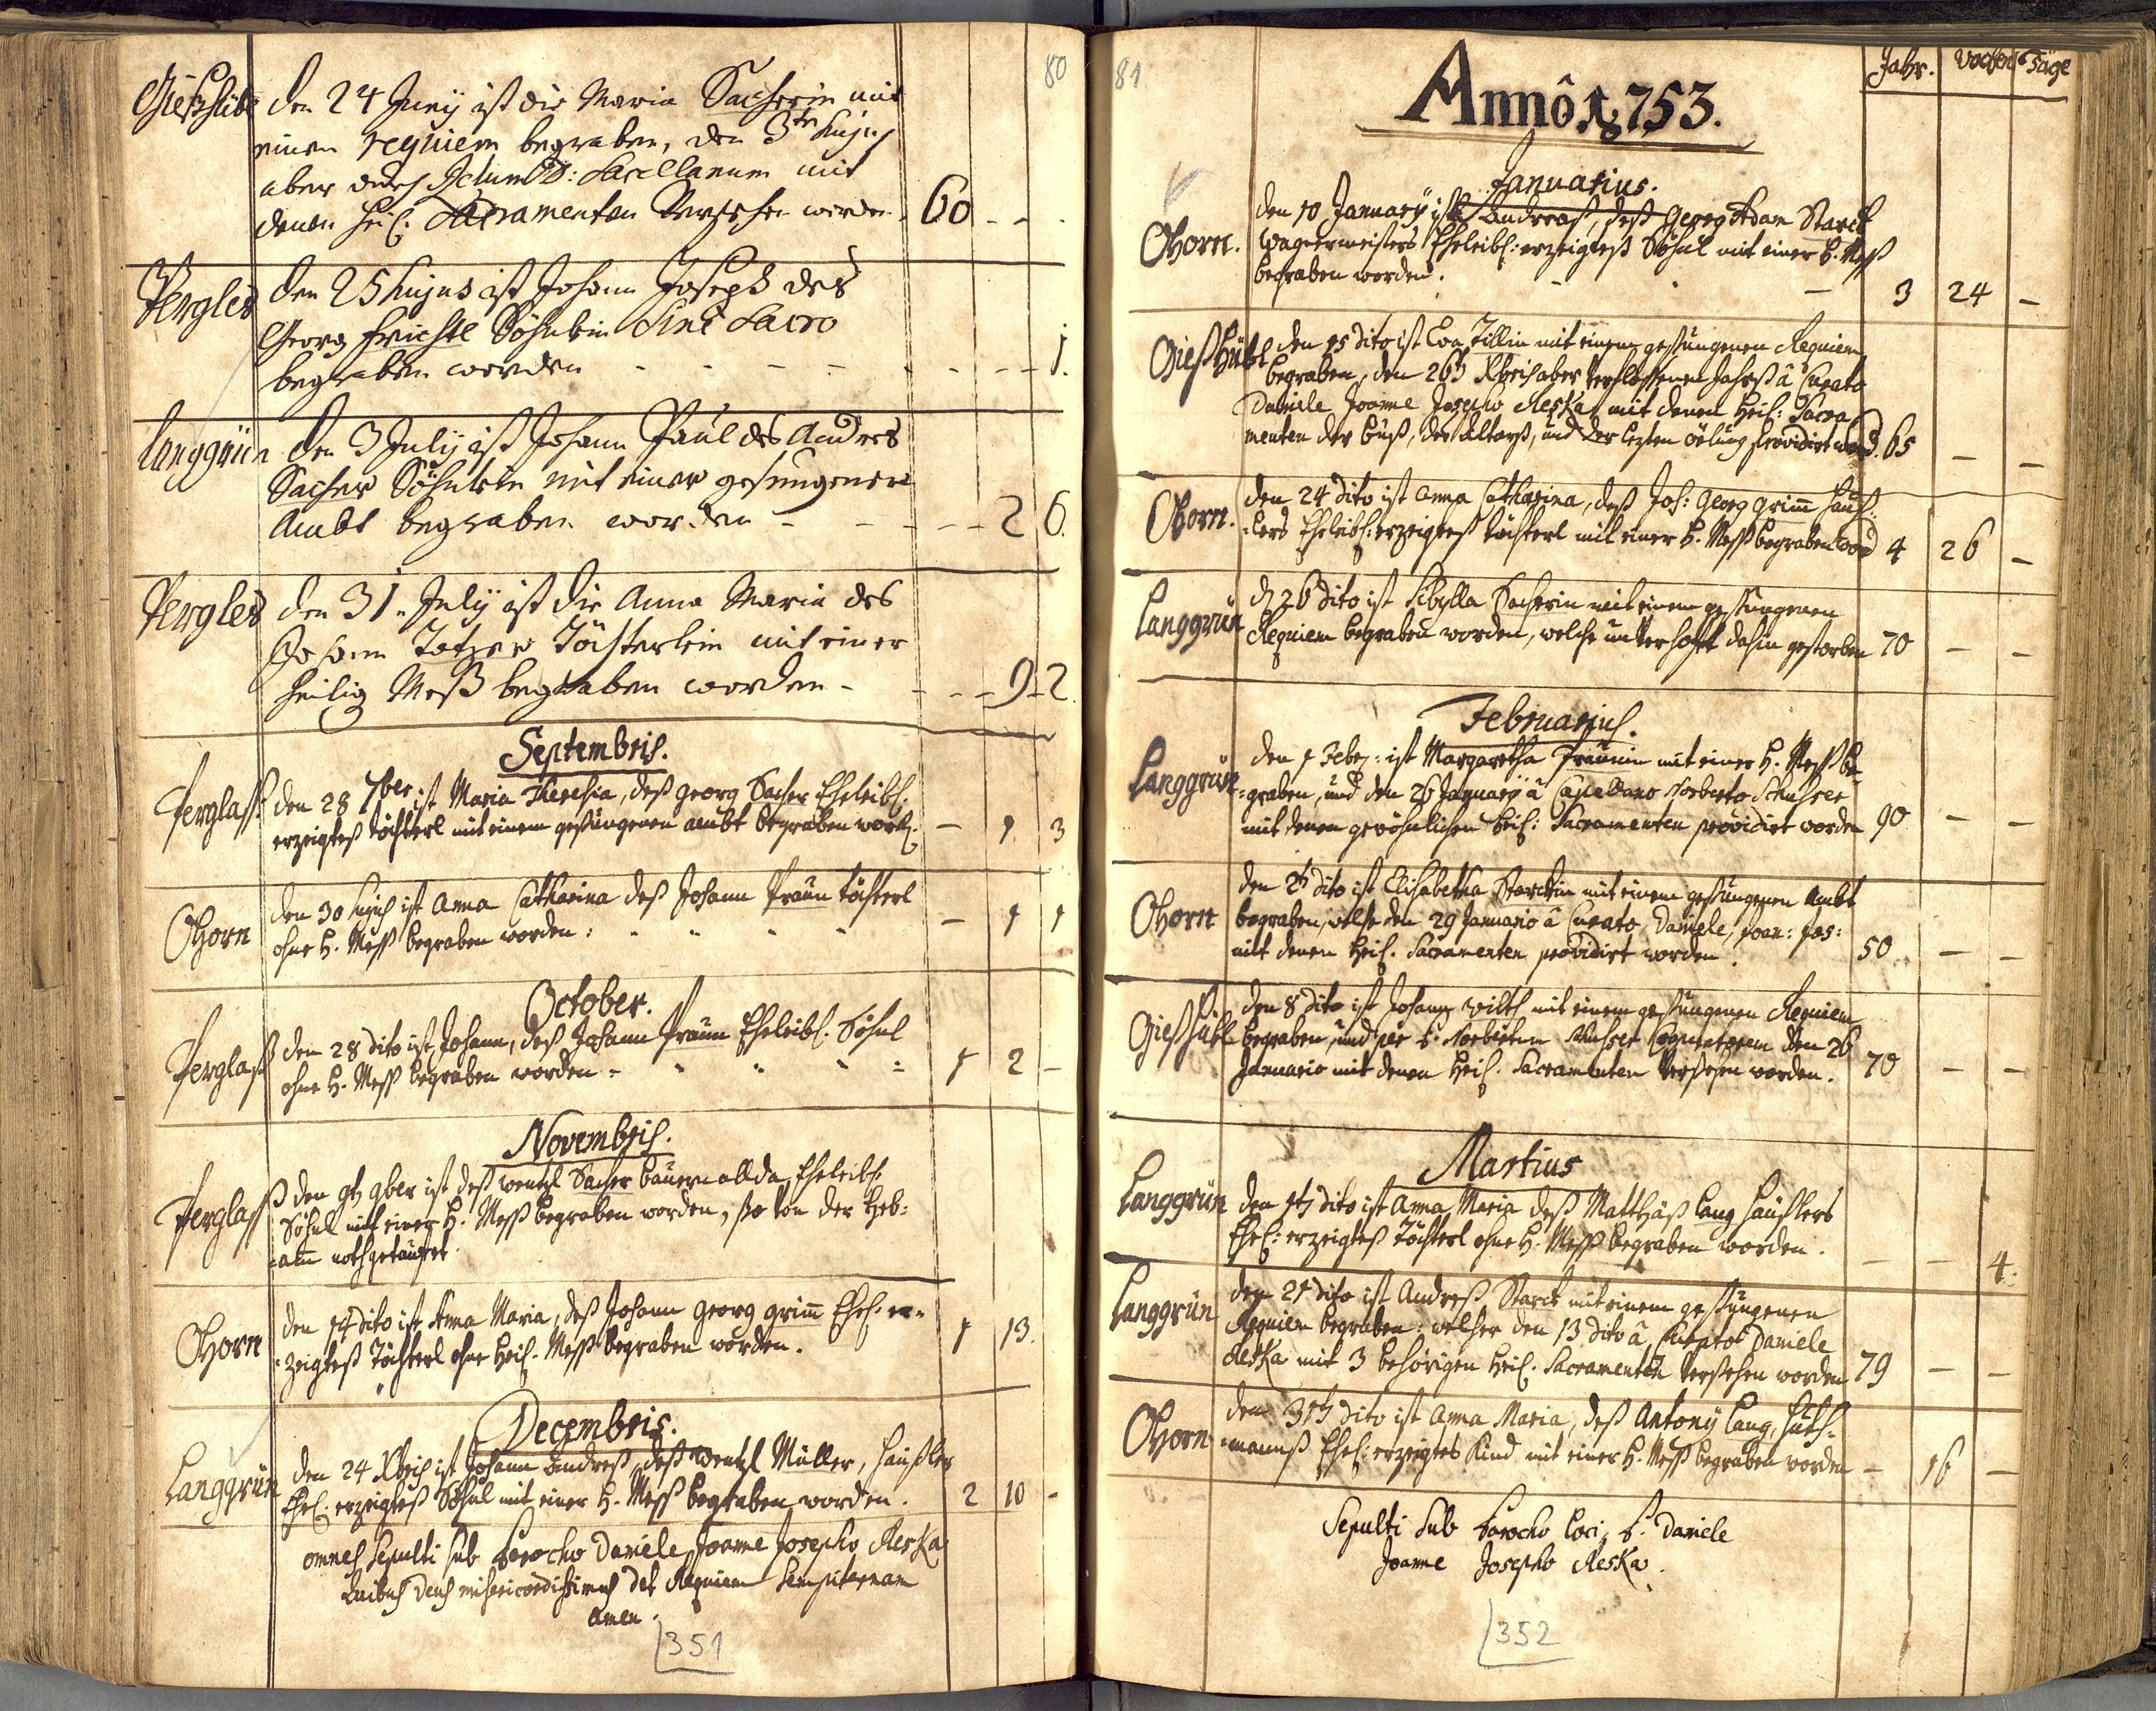 80
Gießhübl den 24 Junÿ ist die Maria Sacherin mit
einem requiem begraben, den 3ten hujus
aber durch D: Sacellanum mit
denen heil. Sacramenten versehen worden. 60 - -
Pergles den 25 hujus ist Johann Joseph des
Georg Frichtl Söhnlein Sine Sacro
begraben worden - - - - - - - 1.
Langgrün den 3 Julÿ ist Johann Paul des Andres
Sacher Söhnlein mit einer gesungenen
Ambt begraben worden - - - - 2 6.
Pergles den 31. Julÿ ist die Anna Maria des
Johann Totzer Töchterlein mit einer
heilig Meß begraben worden - - - - 9 - 2.
Septembris.
Perglaß den 28 7ber ist Maria Theresia, deß Georg Sacher Eheleibl:
erzeigteß töchterl mit einem gesungenen ambt begraben word. - 9 3
Ohorn den 30 hujus ist Anna Catharina deß Johann Praun töchterl
ohne H. Meß begraben worden: - 1 1
October.
Perglaß den 28 dito ist Johann, deß Johann Praun Eheleibl. Söhnl
ohne H. Meß begraben worden - 1 2 -
Novembris.
Perglaß den 9t 9ber ist deß Wentzl Sacher bauern allda Eheleibl.
Söhnl mit einer H. Meß begraben worden, so von der Heb:
=am nothgetauffet.
Ohorn den 14 dito ist Anna Maria, deß Johann Georg Grim̄ Ehel. er=
=zeigteß Töchterl ohne Heil. Meß begraben worden. 1 13.
Decembris.
Langgrün den 24 Xbris ist Johann Andreß, deß Wentzl Müller, Haußler
Ehel: erzeigteß Söhnl mit einer H. Meß begraben worden. 2 10 -
omnes Sepulti sub Parocho Daniele Joanne Josepho Reska
Quibus Deus misericordissimus det Requiem Sempiternam
Amen.
351
81
Jahr. Wochen Täge
Annô 1753.
Januarius.
Ohorn. den 10 Januarÿ ist Andreaß, deß Georg Adam Starck
Wagnermeisters Eheleibl: erzeigteß Söhnl mit einer H. Meß
begraben worden. - - 3 24 -
Gießhübl den 15 dito ist Eva Tillin mit einem gesungenen Requiem
begraben, den 26t Xbris aber verflossenen Jahrß â Curato
Daniele Joanne Josepho Reska mit denen Heil: Sacra
menten der buß, deß Altarß, und der lezten öelung providirt word. 65 - -
Ohorn. den 24 dito ist Anna Catharina, deß Joh: Georg Grim̄ Häuß:
=lers Eheleibl: erzeigteß töchterl mit einer H. Meß begraben word 4 26 -
Langgrün d 26 dito ist Sibylla Sacherin mit einem gesungenen
Requiem begraben worden, welche unverhofft dahin gestorben 70 - -
Februarius.
Langgrün den 1 Feber: ist Margaretha Praunin mit einer H. Meß be=
=graben, und den 26 Januarÿ â Capellano Norberto
mit denen gewöhnlichen Heil: Sacramenten providirt worden 90 - -
Ohorn den 2t dito ist Elisabetha Starckin mit einem gesungenen Ambt
begraben, welche den 29 Januario â Curato Daniele, Joan: Jos:
mit denen Heil. Sacramenten providirt worden. 50 - -
Gießhübl den 8 dito ist Johann Wilth mit einem gesungenen Requiem
begraben, und per P. Norbertum Cooperatorem den 26
Januario mit denen Heil. Sacramenten versehen worden. 70 - -
Martius
Langgrün den 1t dito ist Anna Maria deß Matthäß Lang Häußlers
Ehel: erzeigteß Töchterl ohne H. Meß begraben worden. - - 4.
Langgrün den 21 dito ist Andreß Starck mit einem gesungenen
Requiem begraben: welcher den 13 dito â Curato Daniele
Reska mit 3 behörigen Heil. Sacramenten versehen worden 79 - -
Ohorn den 31t dito ist Anna Maria, deß Antonÿ Lang, Huth=
=manß Ehel: erzeigtes Kind mit einer H. Meß begraben worden - 16 -
Sepulti Sub Parocho loci, P. Daniele
Joanne Josepho Reska.
352